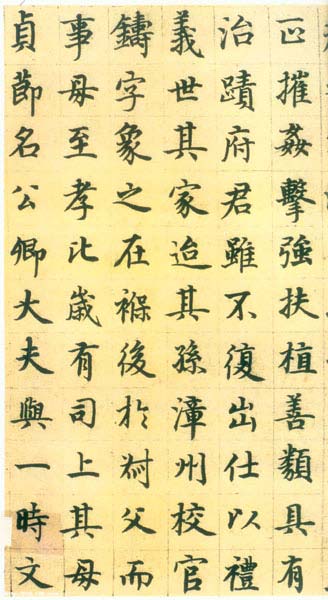 正摧姦擊強扶植善類具有
治蹟府君雖不復出仕以禮
義世其家迨其孫漳州校官
鑄字象之在褓後於父而
事母至孝比歲有司上其母
貞節名公卿大夫與一時文